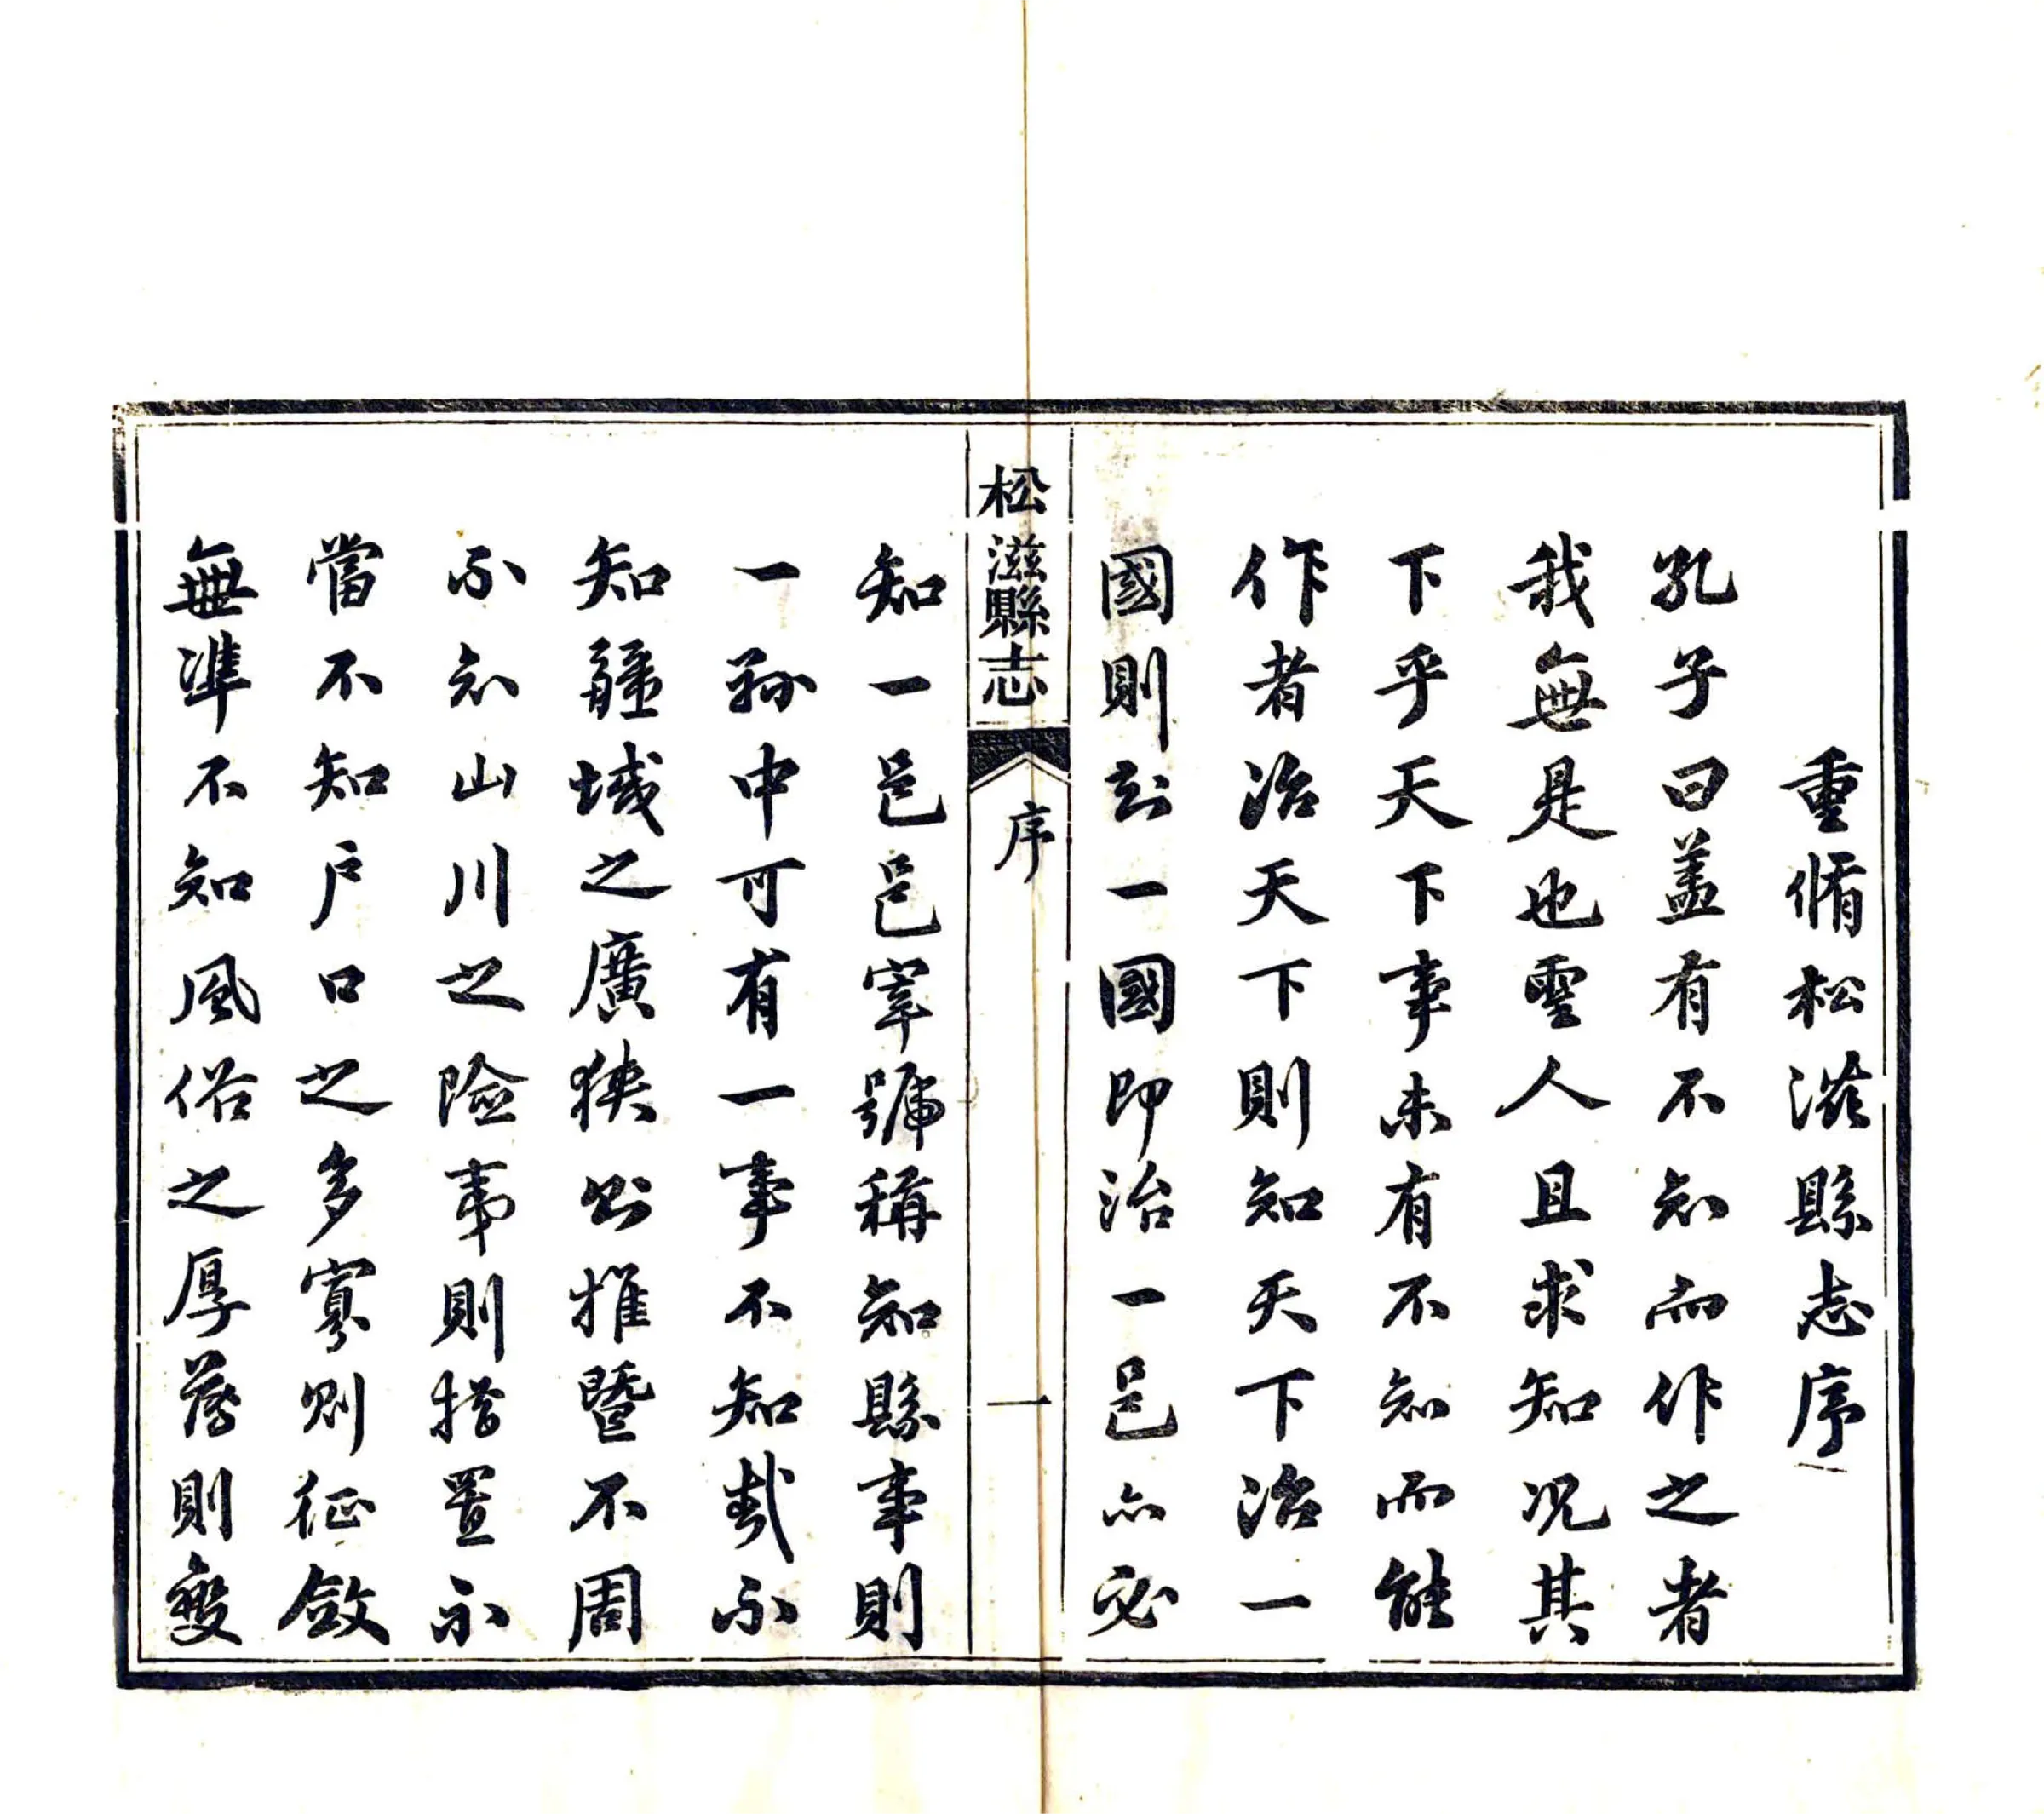 重脩松滋縣志序
孔子曰蓋有不知而作之者
我無是也聖人且求知况其
下乎天下事未有不知而能
作者治天下則知天下治一
國則知一國即治一邑亦必
松滋縣志
序
一
知一邑邑宰號稱知縣事則
一縣中可有一事不知哉不
知疆域之廣狹則推暨不周
不知山川之險夷則措置不
當不知戶口之多寡則征斂
無準不知風俗之厚薄則變